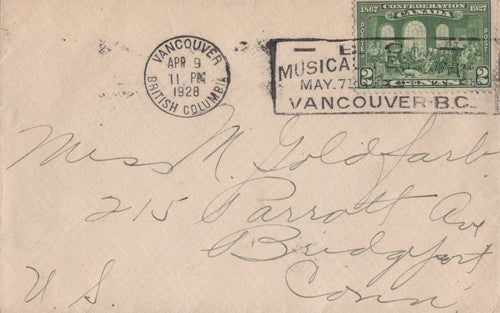 1867 CONFEDERATION 1927
CANADA
POSTES POSTAGE
2 CENTS 2
VANCOUVER
APR 9
11 PM
1928
BRITISH COLUMBIA
MUSICA
MAY. 7
VANCOUVER-B.C.
Miss M. Goldfarb
215 Parrott Av
Bridgeport
Conn
U S